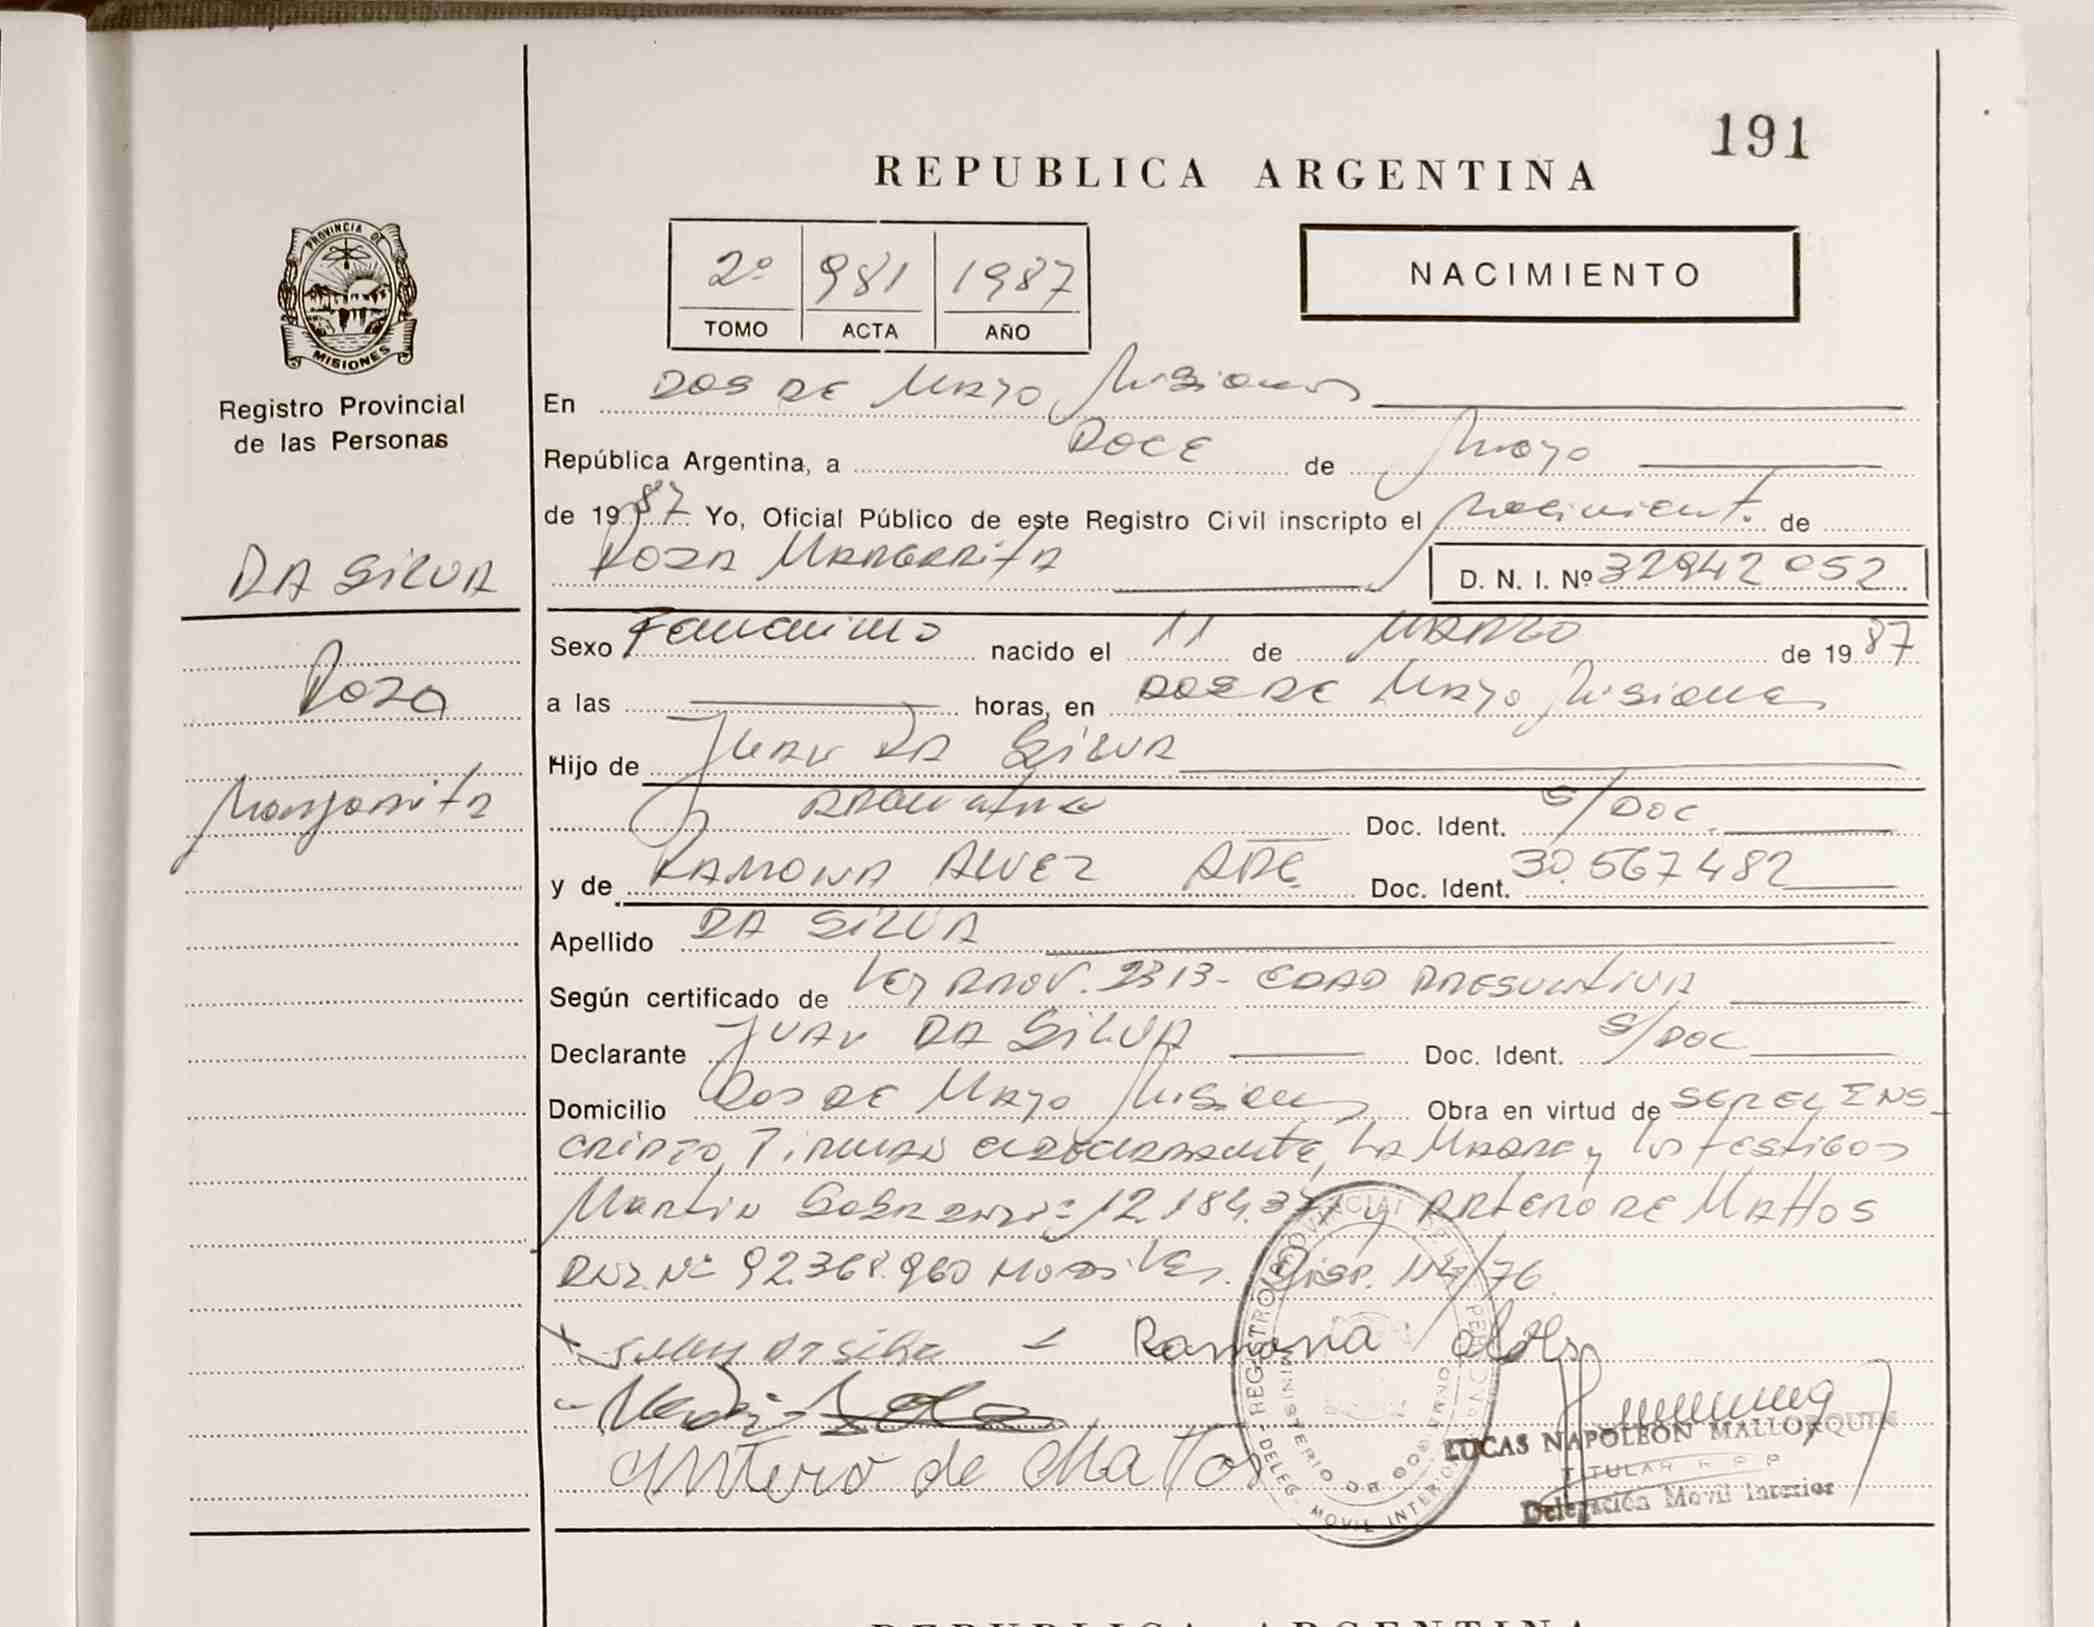 191
REPUBLICA ARGENTINA
2º 981 1987
TOMO ACTA AÑO
NACIMIENTO
PROVINCIA DE
MISIONES
Registro Provincial
de las Personas
DA SILVA
Roza
Margarita
En DOS DE MAYO, Misiones
República Argentina, a DOCE de Mayo
de 1987 Yo, Oficial Público de este Registro Civil inscripto el Nacimient. de
ROZA MARGARITA D. N. I. Nº 32942052
Sexo Femenino nacido el 11 de MARZO de 1987
a las horas, en DOS DE MAYO, Misiones
Hijo de JUAN DA SILVA
Doc. Ident. S/DOC.
y de RAMONA ALVEZ ARG. Doc. Ident. 30.567482
Apellido DA SILVA
Según certificado de Ley PROV. 2313- EDAD PRESUNTIVA
Declarante JUAN DA SILVA Doc. Ident. S/DOC
Domicilio Dos DE MAYO Misiones Obra en virtud de SER EL INS
CRIPTO, FIRMAN EL DECLARANTE, LA MADRE y los testigos
Martin 12.184.371 y ANTERO DE MATTOS
DNI. Nº 92.368.960 Disp. 114/76
Ramona
Antero de Mattos
REGISTRO PROVINCIAL DE LAS PERSONAS
MINISTERIO DE GOBIERNO
DELEG. MOVIL INTERIOR
LUCAS NAPOLEON MALLORQUIN
TITULAR R P P
Delegación Movil Interior
REPUBLICA ARGENTINA